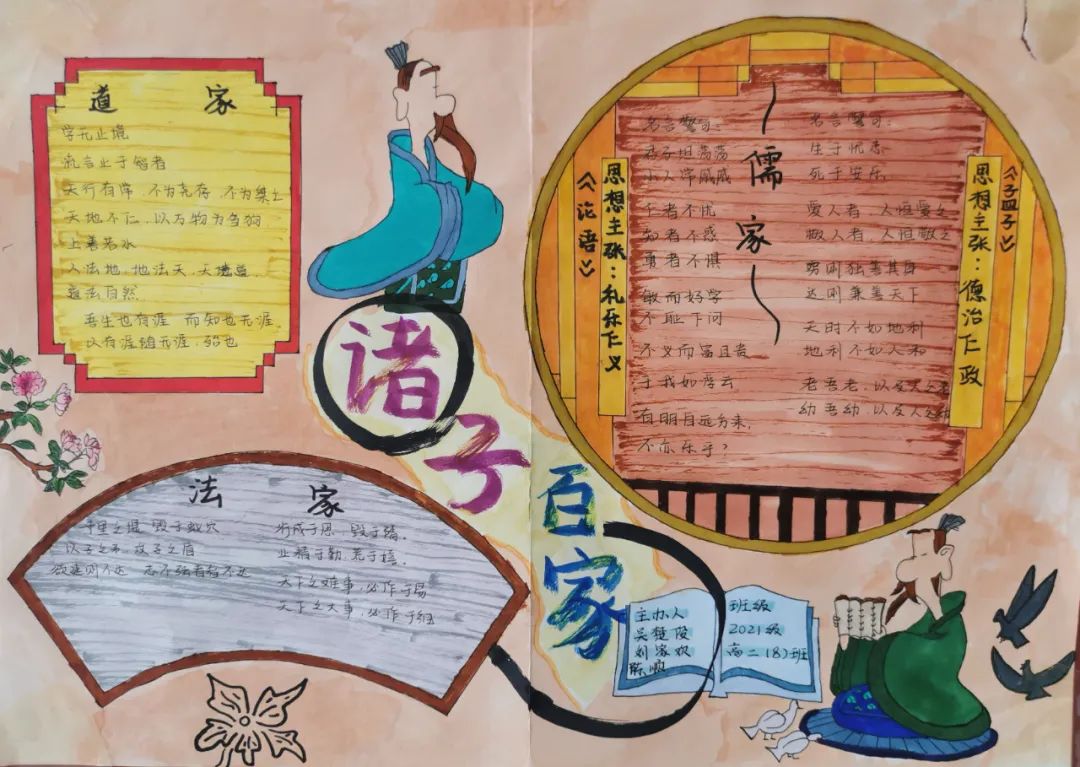 道家
学无止境
流言止于智者
天行有常，不为尧存，不为桀亡
天地不仁，以万物为刍狗，
上善若水
人法地，地法天，天法道，
道法自然
吾生也有涯 而知也无涯，
以有涯随无涯，殆也
诸子
百家
儒家
《论语》
思想主张：礼乐仁义
名言警句：
君子坦荡荡
小人常戚戚
仁者不忧
知者不惑
勇者不惧
敏而好学
不耻下问
不义而富且贵
于我如浮云
有朋自远方来，
不亦乐乎？
名言警句：
生于忧患
死于安乐
爱人者，人恒爱之
敬人者，人恒敬之
穷则独善其身
达则兼善天下
天时不如地利
地利不如人和
老吾老，以及人之老
幼吾幼，以及人之幼
《孟子》
思想主张：德治仁政
法家
千里之堤 毁于蚁穴
以子之矛 攻子之盾
欲速则不达 志不强者智不达
行成于思，毁于随。
业精于勤，荒于嬉，
天下之难事，必作于易
天下之大事，必作于细
主办人
刘家欢
陈顺
班级
2021级
高二（8）班